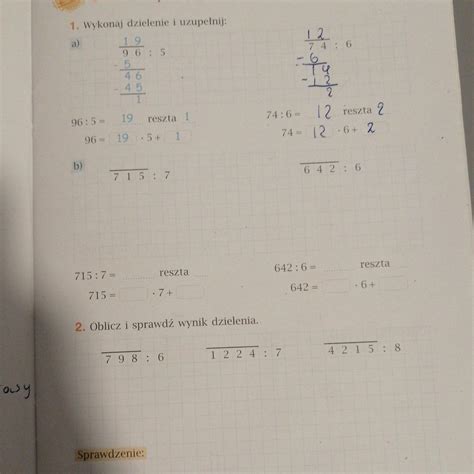 1. Wykonaj dzielenie i uzupełnij:
a)
1 9
9 6 : 5
- 5
4 6
- 4 5
1
96 : 5 = 19 reszta 1
96 = 19 · 5 + 1
1 2
7 4 : 6
- 6
1 4
- 1 2
2
74 : 6 = 12 reszta 2
74 = 12 · 6 + 2
b)
7 1 5 : 7
6 4 2 : 6
715 : 7 = reszta
715 = · 7 +
642 : 6 = reszta
642 = · 6 +
2. Oblicz i sprawdź wynik dzielenia.
7 9 8 : 6
1 2 2 4 : 7
4 2 1 5 : 8
owy
Sprawdzenie: